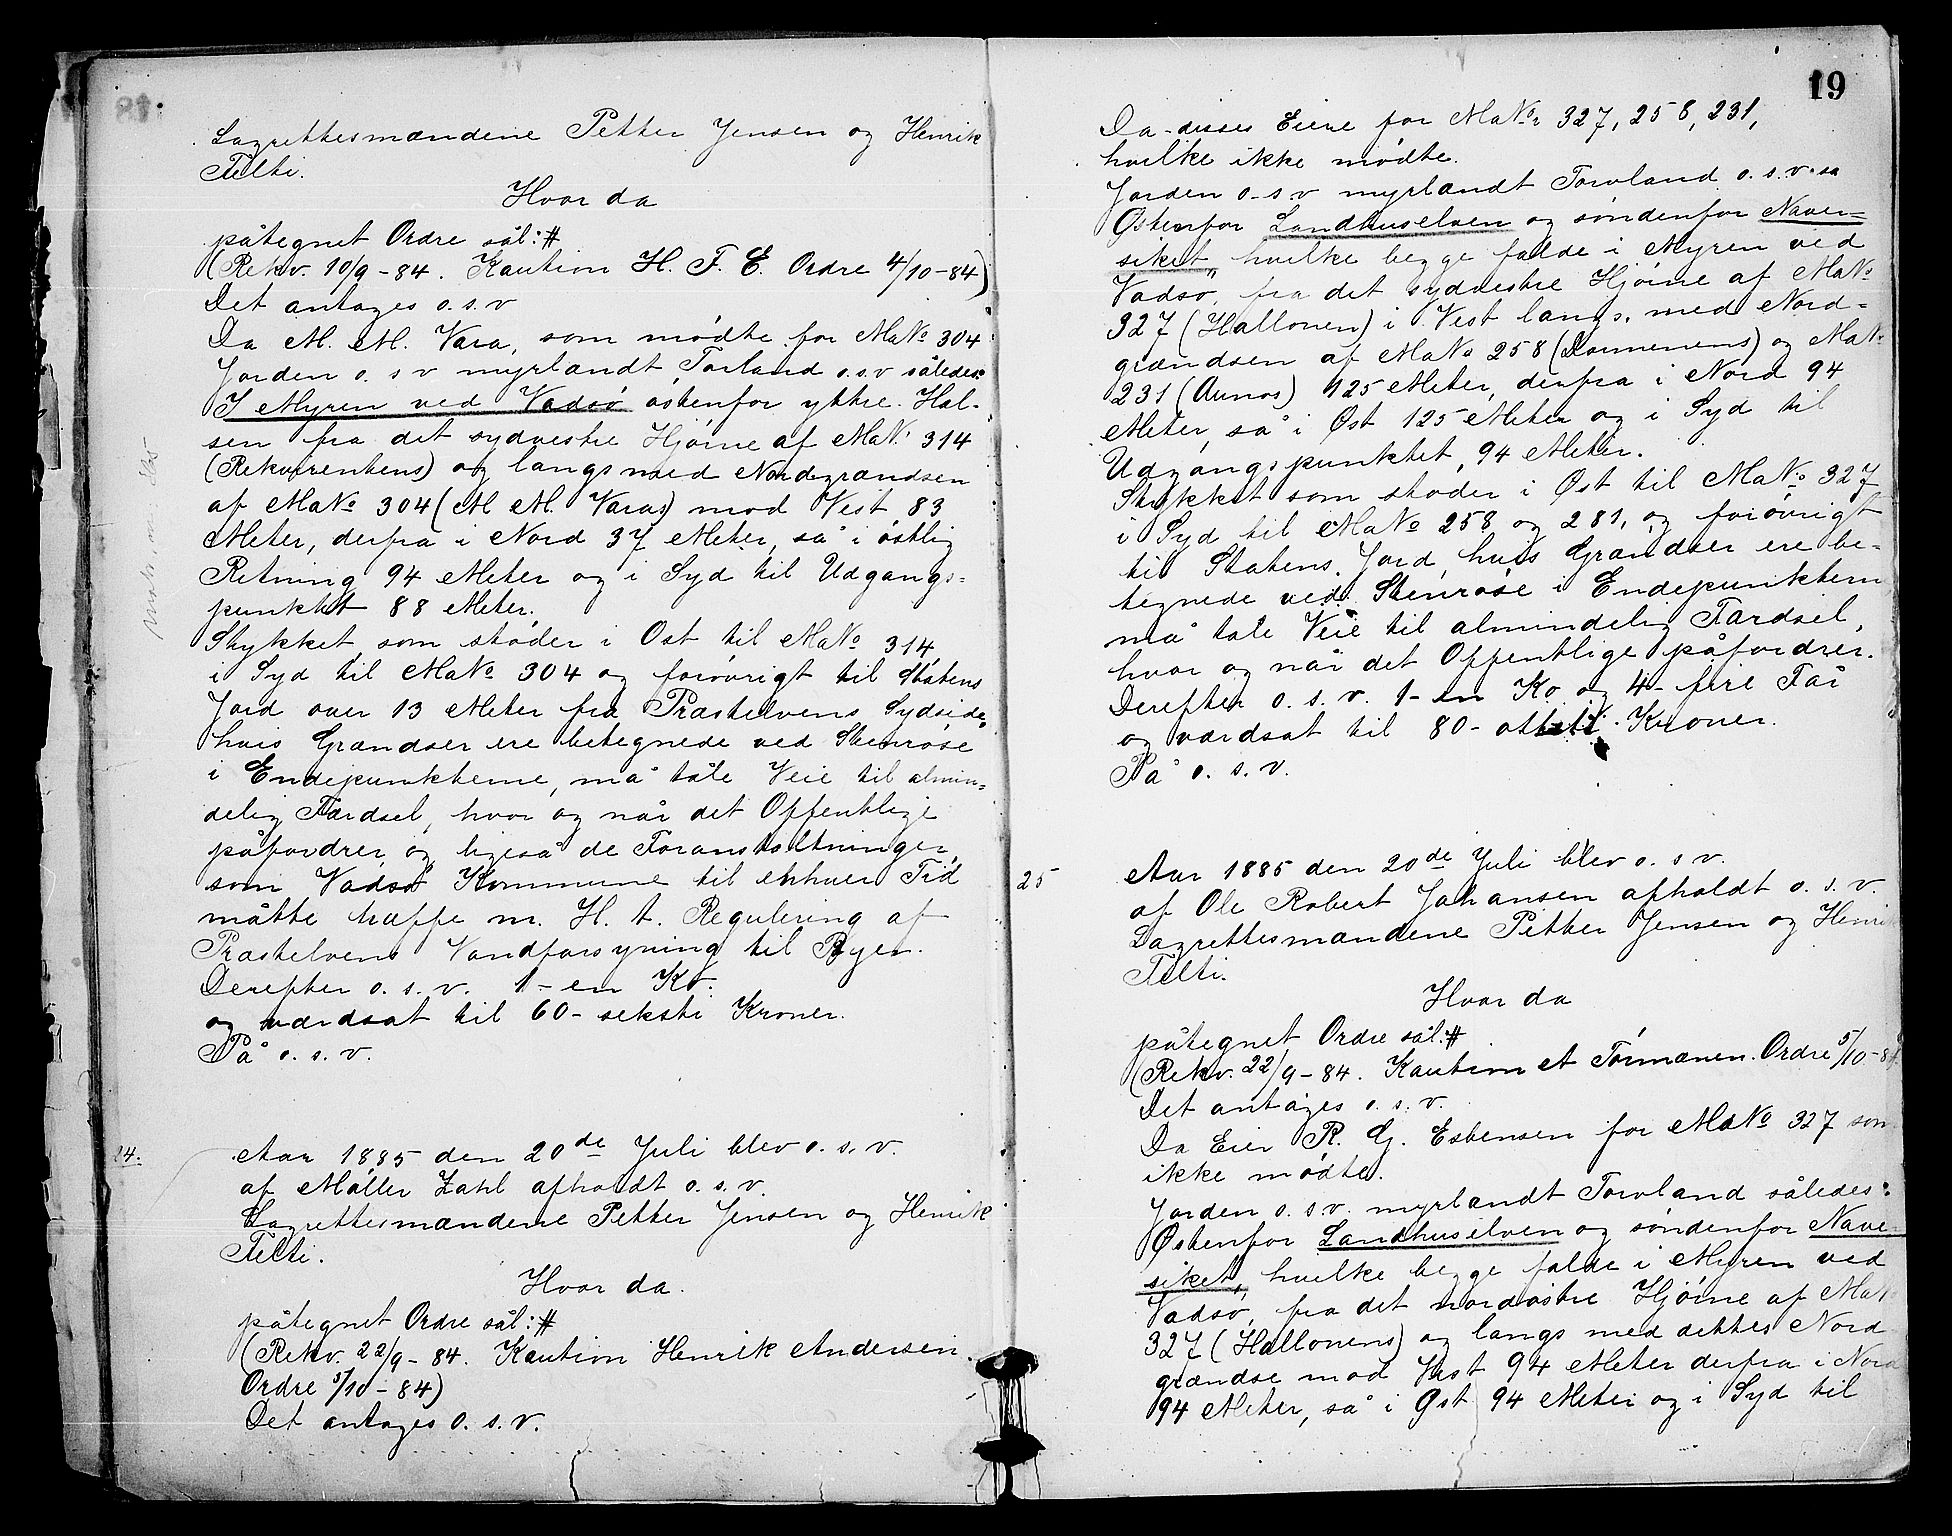 Lagrettesmændene Petter Jensen og Henrik
Tilti.
Hvor da
påtegnet Ordre sål:#
(Rekv. 10/9-84. Kaution H. F. E. Ordre 4/10-84)
Det antages o.s.v
Da M. M. Vara, som mødte for MaNo 304
Jorden o. s v myrlændt Torland o.s.v således:
I Myren ved Vadsø østenfor yttre Hal-
sen fra det sydvestre Hjørne af MaN. 314
(Rekvirentens) og langsmed Nordgrændsen
af MaNo 304 (M M. Varas) mod Vest 83
Meter, derfra i Nord 37 Meter, så i østlig
Retning 94 Meter og i Syd til Udgangs=
punktet 88 Meter.
Stykket, som støder i Øst til MaNo 314,
i Syd til MaNo 304 og forøvrigt til Statens
Jord over 13 Meter fra Præstelvens Sydside,
hvis Grændser ere betegnede ved Stenrøse
i Endepunkterne, må tåle Veie til almin=
delig Færdsel, hvor og når det Offentlige
påfordrer, og ligeså de Foranstaltninger,
som Vadsø Kommune til enhver Tid
måtte træffe m. H. t. Regulering af
Præstelvens Vandforsyning til Byen.
Derefter o. s. v. 1 - en Ko.
og værdsat til 60 - seksti Kroner.
På o. s. v.
24.
Aar 1885 den 20de Juli blev o. s. v.
af Møller Zahl afholdt o. s. v.
Lagrettesmændene Petter Jensen og Henrik
Tilti.
Hvor da.
påtegnet Ordre sål:#
(Rekv. 22/9-84. Kaution Henrik Andersen.
Ordre 5/10-84)
Det antages o. s. v.
19
Da disses Eiere for MaNo. 327, 258, 231,
hvilke ikke mødte.
Jorden o-s-v myrlændt Torvland o. s. v. sa
Østenfor Landhuselven og søndenfor Naver=
siket, hvilke begge falde i "Myren ved
Vadsø", fra det sydvestre Hjørne af MaNo
327 (Hallonen) i Vest langs. med Nord=
grændsen af MaNo 258 (Dommenens) og MaN.
231 (Aunos) 125 Meter, derfra i Nord 94
Meter, så i Øst 125 Meter og i Syd til
Udgangspunktet, 94 Meter.
Stykket som støder i Øst til MaNo. 327
i Syd til MaNo 258 og 281, og forøvrigt
til Statens Jord, hvis Grændser ere be=
tegnede ved Stenrøse i Endepunktern
må tåle Veie til almindelig Færdsel,
hvor og når det Offentlige påfordrer.
Derefter o. s. v. 1 - en Ko og 4 - fire Får
og værdsat til 80 - otteti Kroner.
På o. s. v.
25
Aar 1885 den 20de Juli blev o. s v.
af Ole Robert Johansen afholdt o. s. v.
Lagrettesmændene Petter Jensen og Henri
Tilti.
Hvor da
påtegnet Ordre sål:#
(Rekv. 22/9-84. Kaution A Tórmænen. Ordre 5/10-84
Det antages o. s. v.
Da Eier R. G. Esbensen for MaNo 327 som
ikke mødte.
Jorden o. s v. myrlændt Torvland således:
Østenfor Landhuselven og søndenfor Nave=
siket, hvilke begge falde i Myren ved
Vadsø, fra det nordøstre Hjørne af MaN.
327 (Hallonens) og langs med dettes Nord
grændse mod Vest 94 Meter derfra i Nord
94 Meter, så i Øst 94 Meter og i Syd til